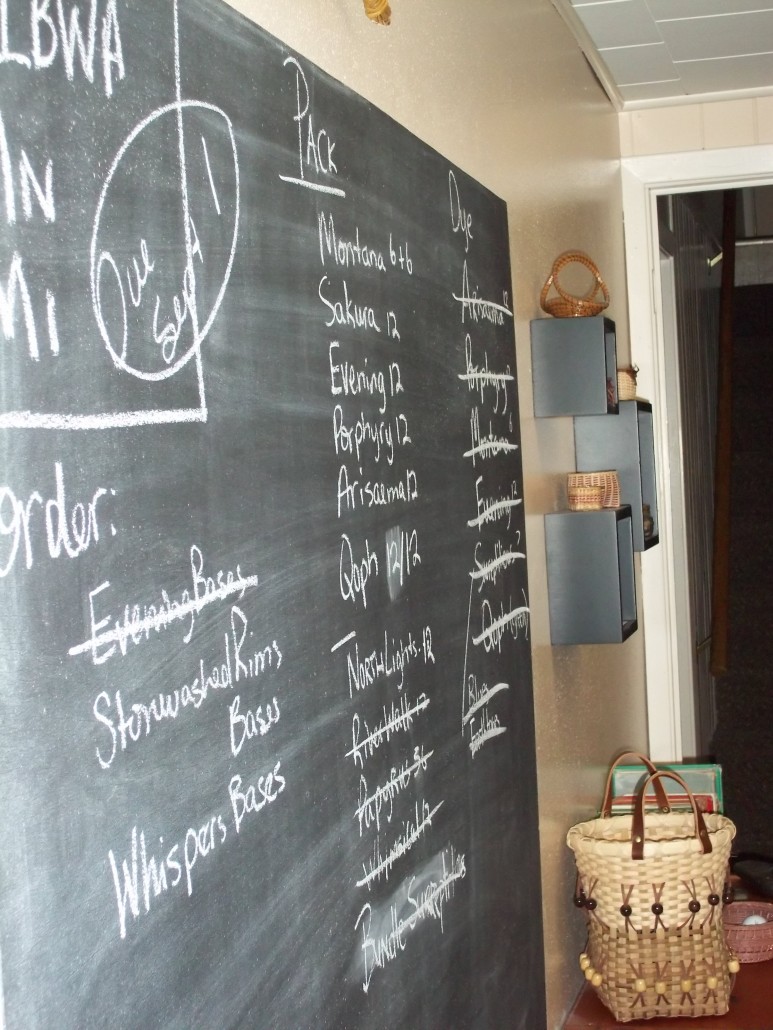 LBWA
IN
MI
Due
Sept 1
Order:
Evening Bases
Stonwashed Rims
Bases
Whispers Bases
PACK
Montana 6+6
Sakura 12
Evening 12
Porphyry 12
Arisaema 12
Qoph 12/12
North Lights - 12
River Walk 12
Papyrus 36
Whimsical 12
Bundle Supplies
Dye
Arisaema 12
Porphyry 12
Montana 6
Evening 12
Blue